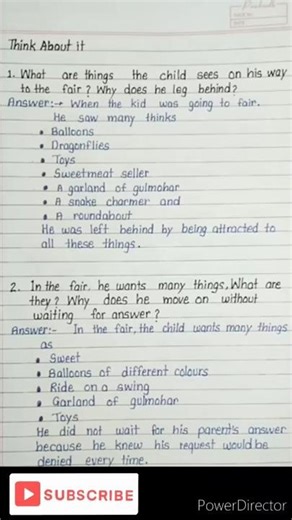 Think About it
1. What are things the child sees on his way
to the fair? Why does he leg behind?
Answer:→ When the kid was going to fair.
He saw many thinks
• Balloons
• Dragonflies
• Toys
• Sweetmeat seller
• A garland of gulmohar
• A snake charmer and
• A roundabout
He was left behind by being attracted to
all these things.
2. In the fair, he wants many things. What are
they? Why does he move on without
waiting for answer?
Answer:- In the fair, the child wants many things
as
• Sweet
• Balloons of different colours
• Ride on a swing
• Garland of gulmohar
• Toys
He did not wait for his parent's answer
because he knew his request would be
denied every time.
SUBSCRIBE
PowerDirector